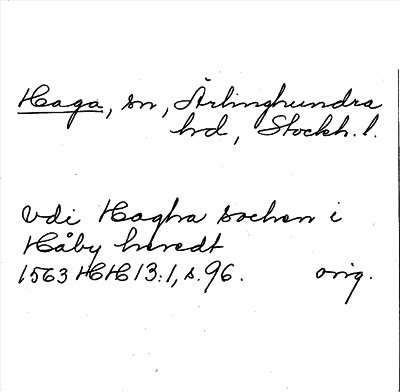 Haga, sn, Ärlinghundra
hd, Stockh. l.
Vdi Hagha sochen i
Håby heredt
1563 HH 13:1, s. 96. orig.